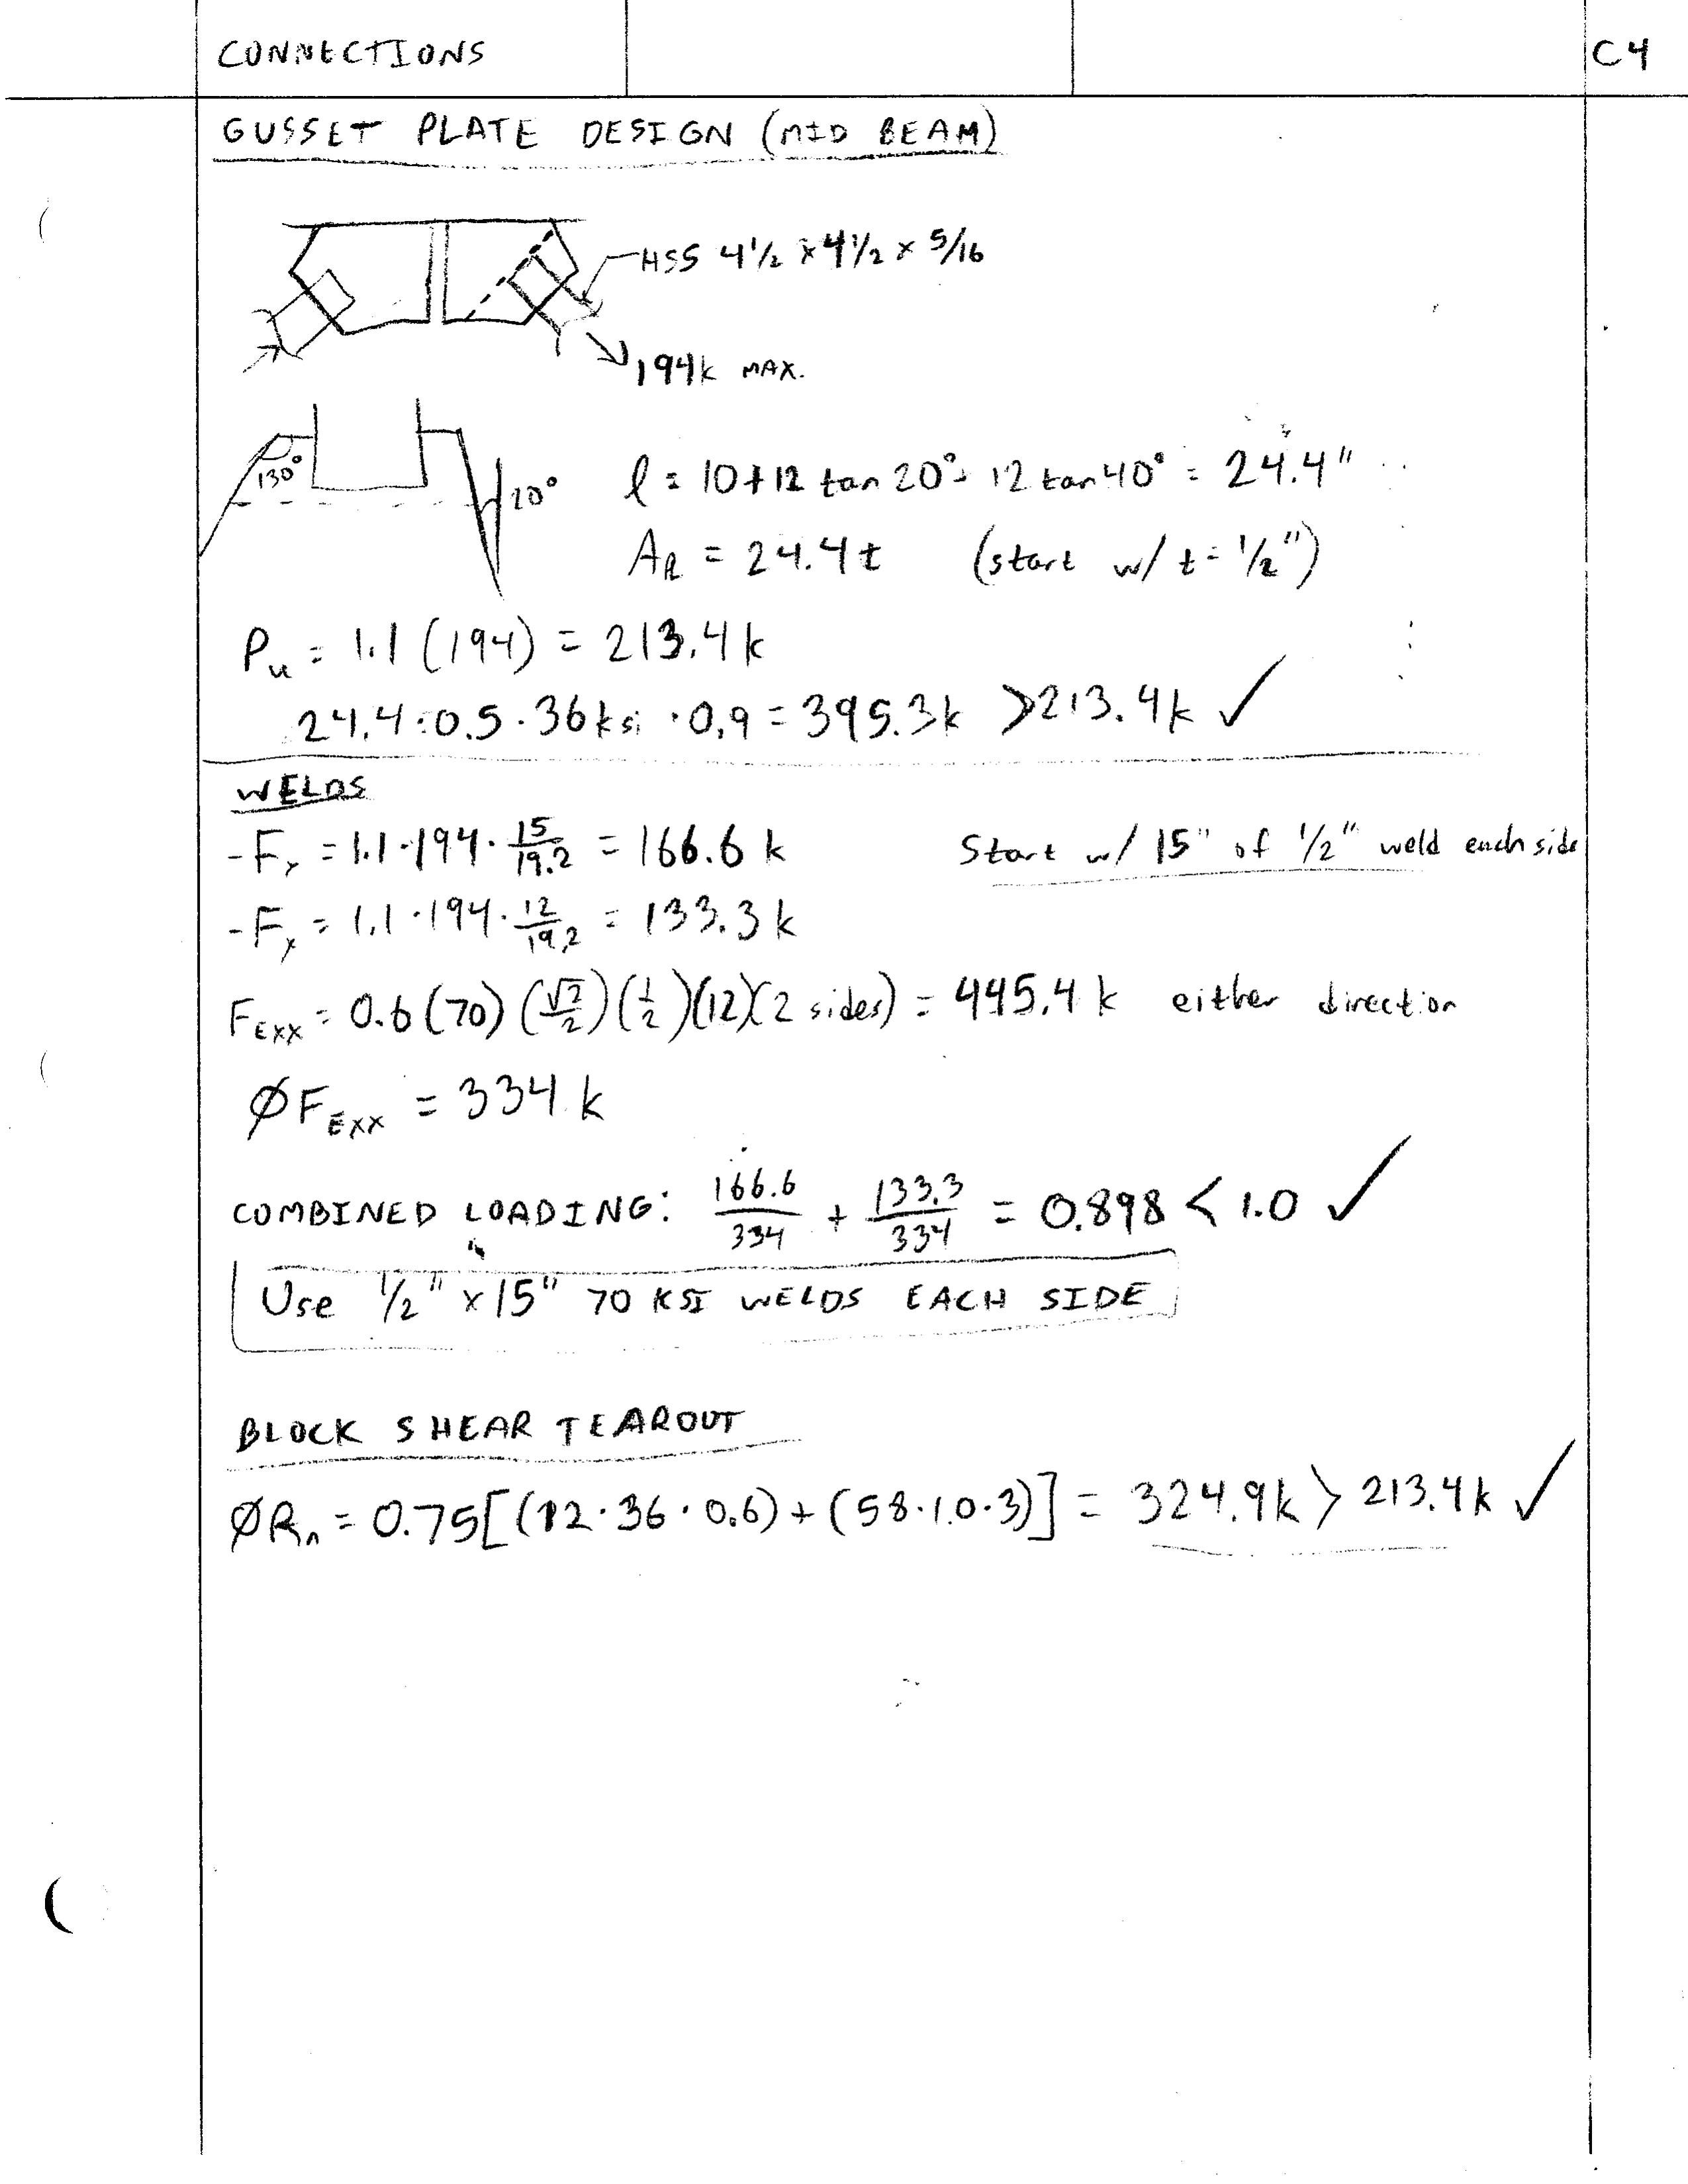 CONNECTIONS C4
GUSSET PLATE DESIGN (MID BEAM)
HSS 4 1/2 x 4 1/2 x 5/16
194k MAX.
130°
20°
l = 10+12 tan 20° + 12 tan 40° = 24.4"
A_R = 24.4t (start w/ t = 1/2")
P_u = 1.1 (194) = 213.4 k
24.4 · 0.5 · 36 ksi · 0.9 = 395.3k > 213.4k ✓
WELDS
- F_y = 1.1 · 194 · 15/19.2 = 166.6 k Start w/ 15" of 1/2" weld each side
- F_x = 1.1 · 194 · 12/19.2 = 133.3 k
F_EXX = 0.6 (70) (√2/2) (1/2) (12) (2 sides) = 445.4 k either direction
ØF_EXX = 334 k
COMBINED LOADING: 166.6/334 + 133.3/334 = 0.898 < 1.0 ✓
Use 1/2" x 15" 70 KSI WELDS EACH SIDE
BLOCK SHEAR TEAROUT
ØR_n = 0.75[(12·36·0.6) + (58·1.0·3)] = 324.9k > 213.4k ✓